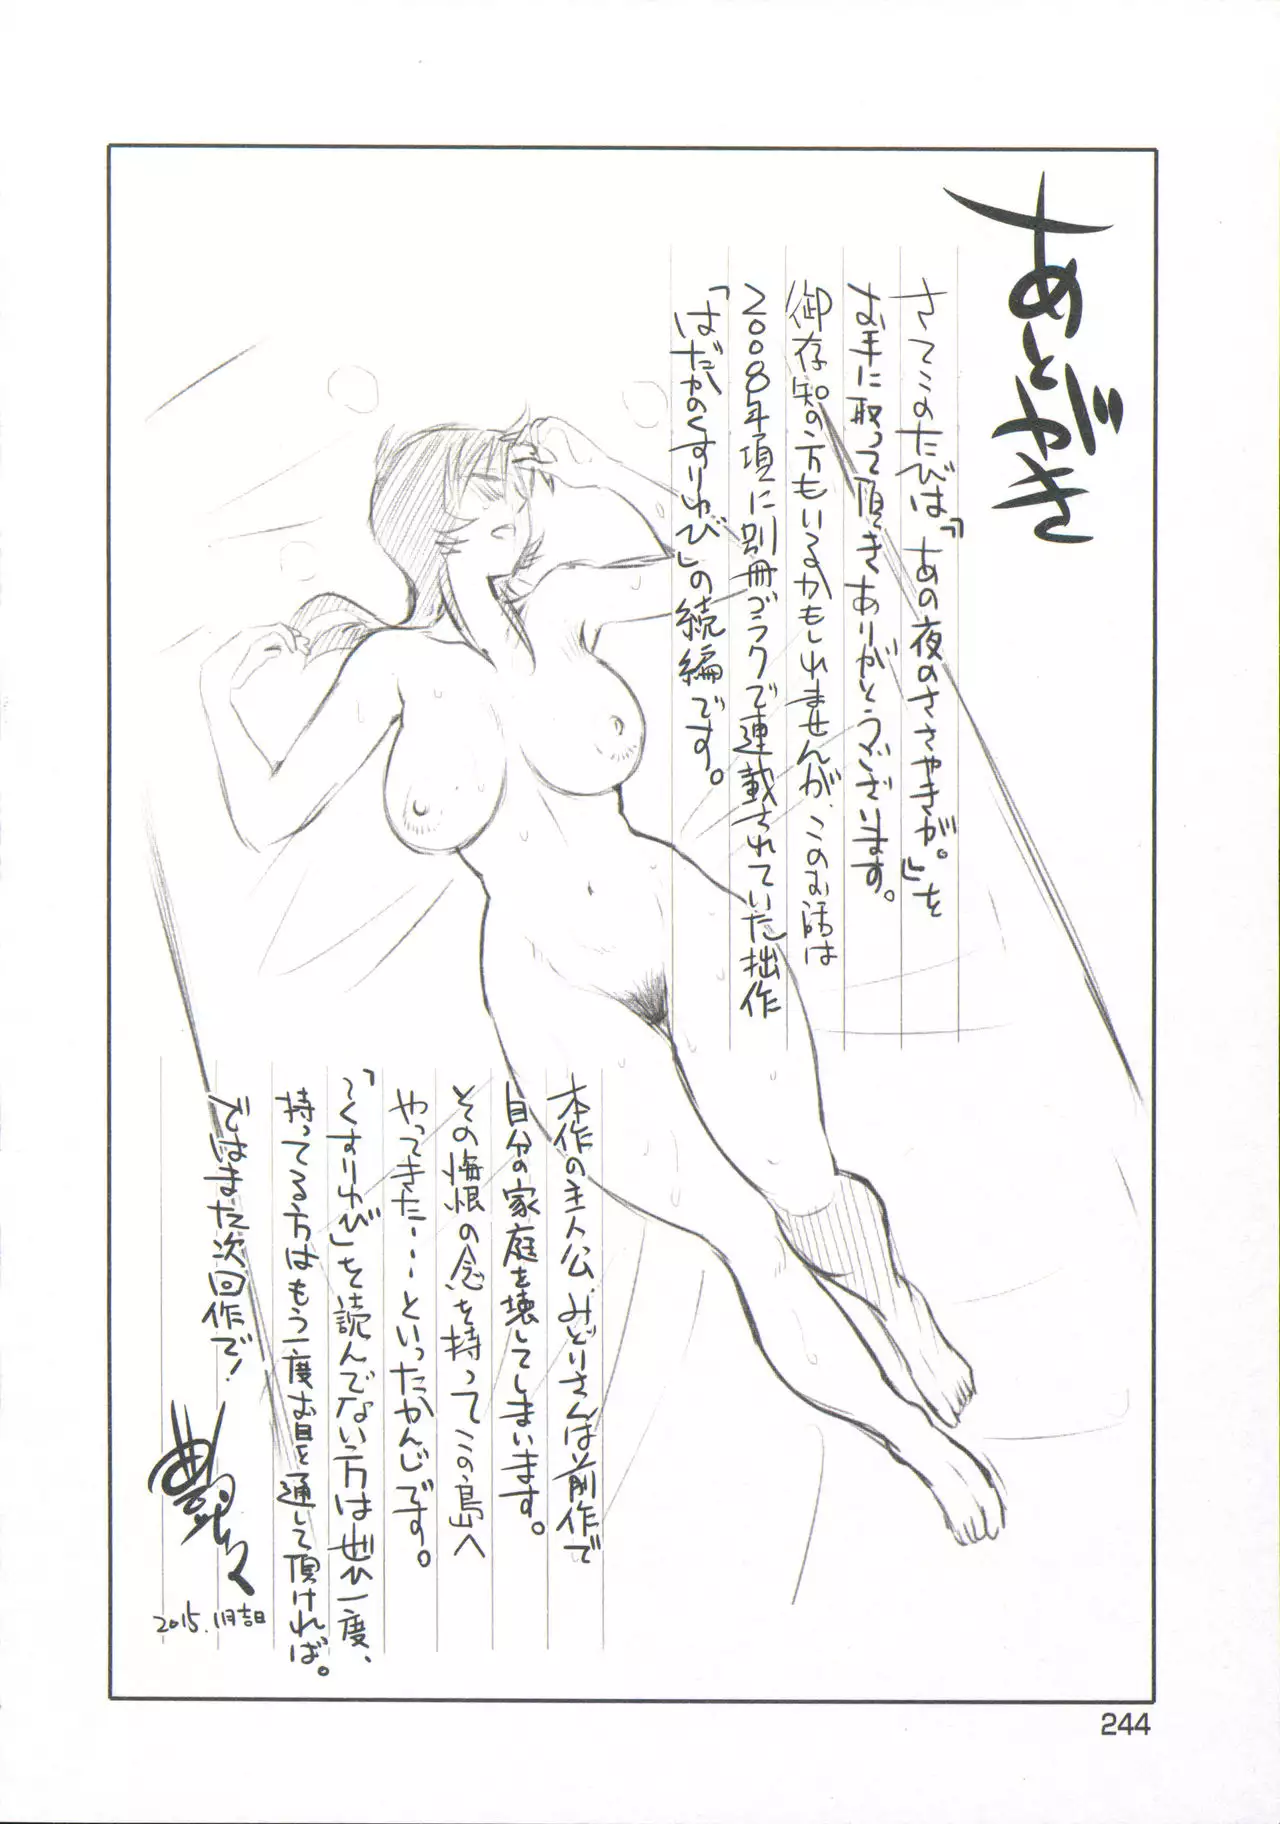 あとがき
さてこのたびは「あの夜のささやきが。」を
お手に取って頂きありがとうございます。
御存知の方もいるかもしれませんが、このお話は
2008年頃に別冊ゴラクで連載されていた拙作
「はだかのくすりゆび」の続編です。
本作の主人公、みどりさんは前作で
自分の家庭を壊してしまいます。
その悔恨の念を持ってこの島へ
やってきた・・・といったかんじです。
「〜くすりゆび」を読んでない方はぜひ一度、
持ってる方はもう一度お目を通して頂ければ。
ではまた次回作で!
艶々
2015.11月吉日
244